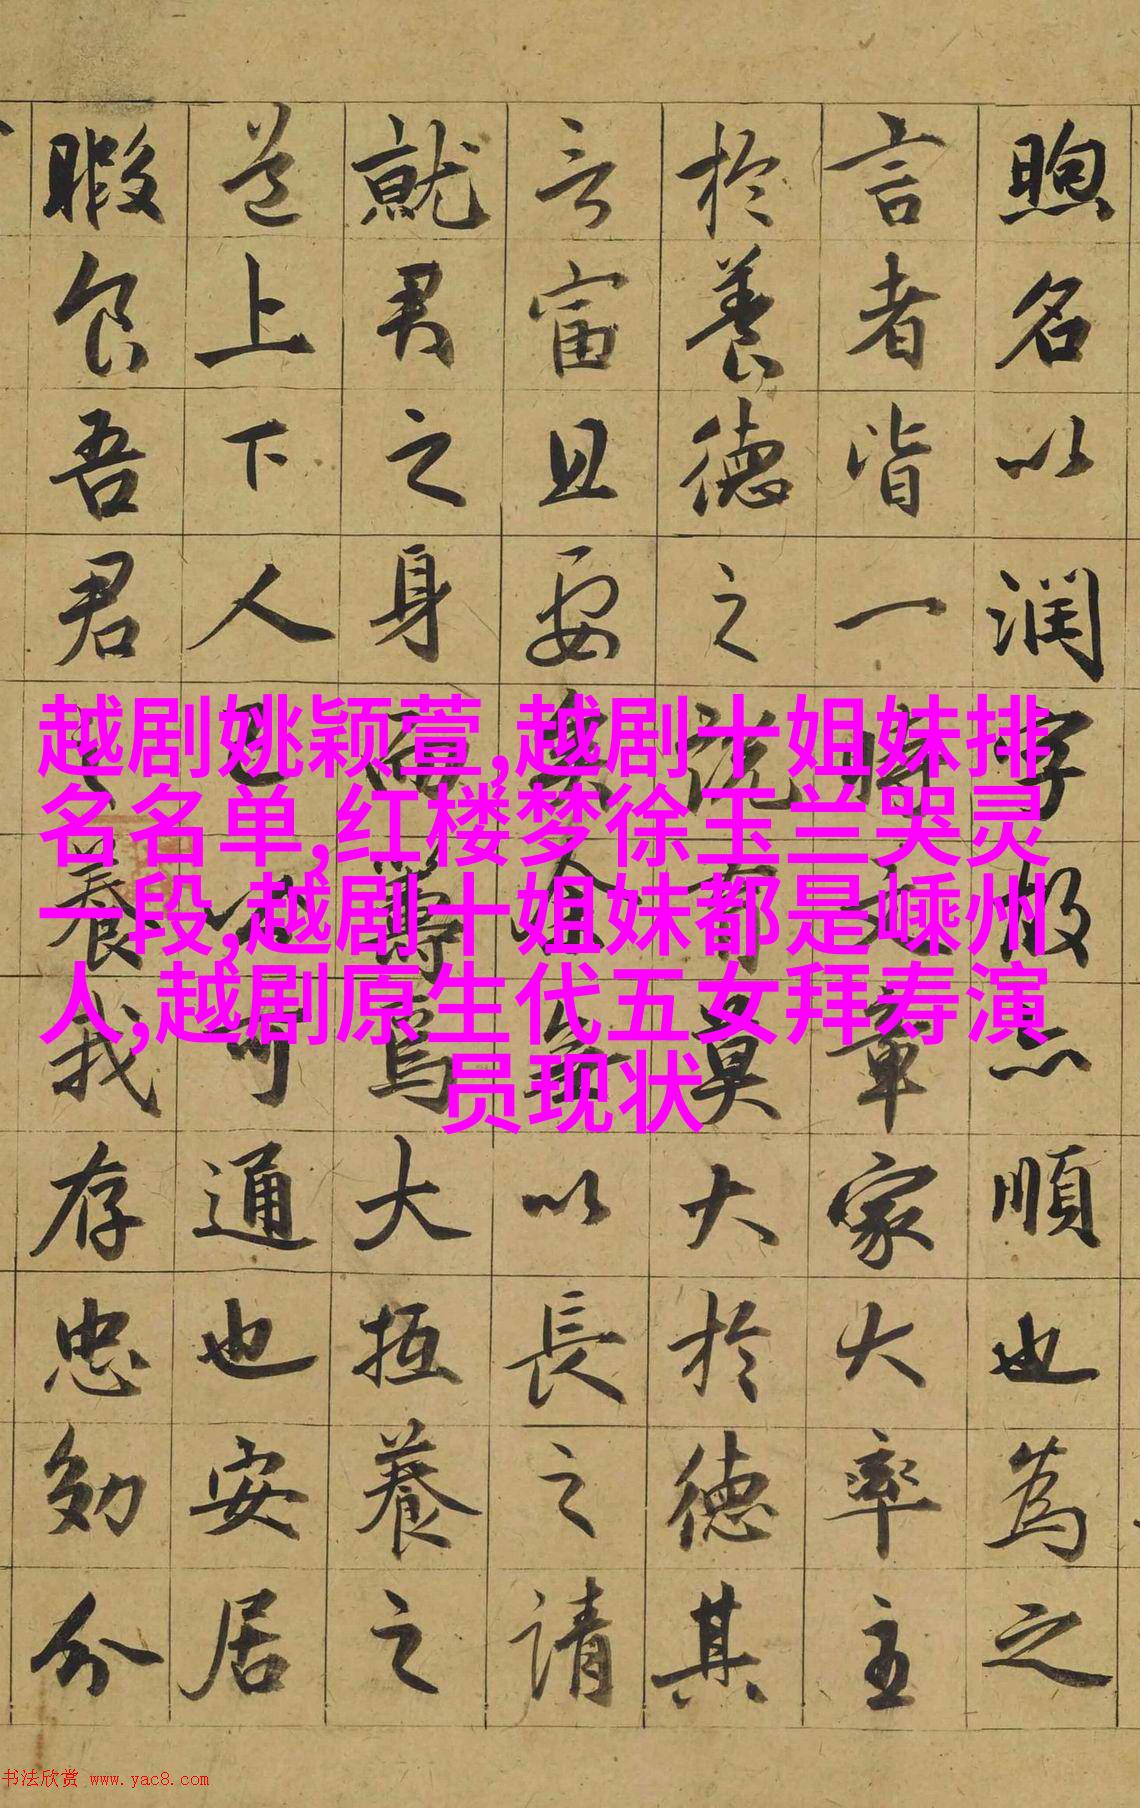 煦名以润字故亦順也為之
言者皆一時文章家大率主
於養德之說有莫大於德其
言富且要以長之請
就君之身而焉大抵養之
道上下人可通也安居
暇食吾君養我存忠効分
越剧姚颖萱,越剧十姐妹排
名名单,红楼梦徐玉兰哭灵
一段,越剧十姐妹都是嵊州
人,越剧原生代五女拜寿演
员现状
书法欣赏 www.yac8.com